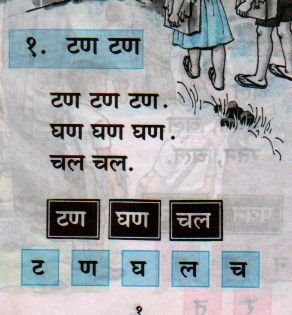 १. टण टण
टण टण टण.
घण घण घण.
चल चल.
टण घण चल
ट ण घ ल च
१